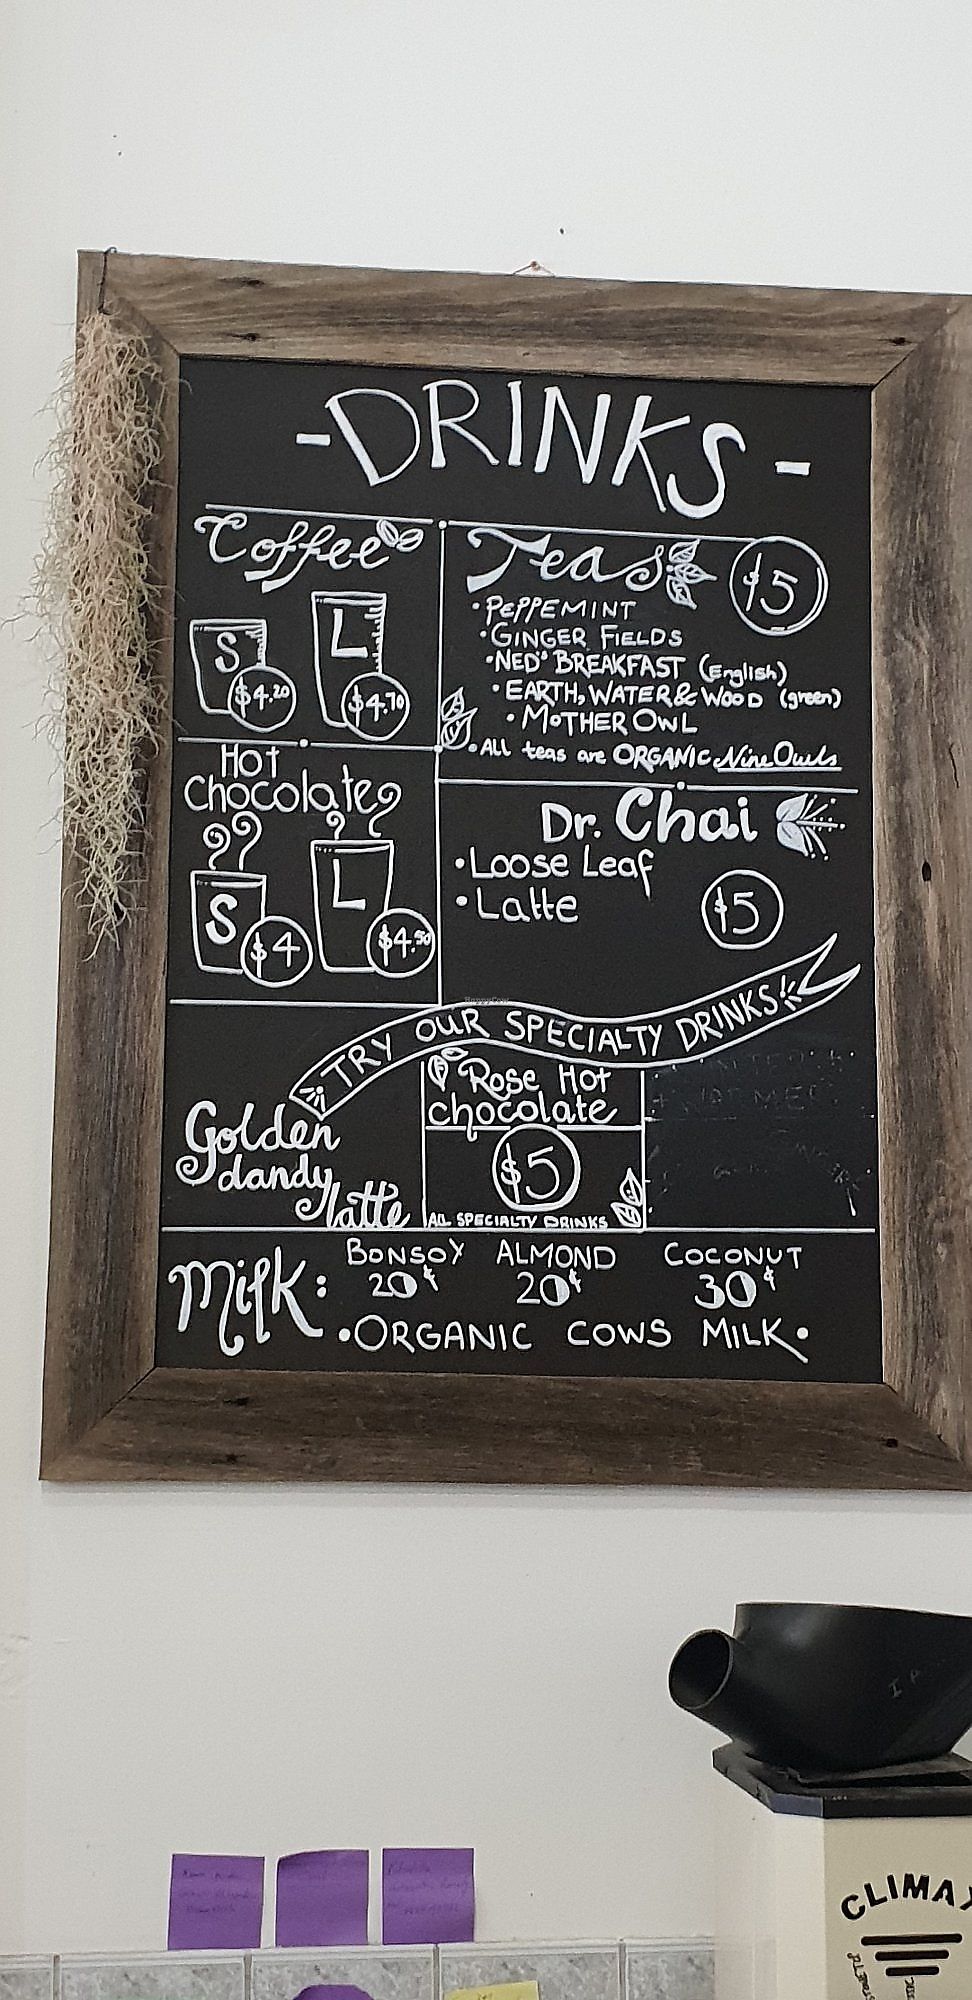 -DRINKS-
Coffee
S
$4.20
L
$4.70
Teas
$5
• PEPPEMINT
• GINGER FIELDS
• NED'' BREAKFAST (English)
• EARTH, WATER & WOOD (green)
• MOTHER OWL
• All teas are ORGANIC Nine Owls
Hot
Chocolate
S
$4
L
$4.50
Dr. Chai
• Loose Leaf
• Latte
$5
HappyCow
TRY OUR SPECIALTY DRINKS
Golden
dandy
latte
Rose Hot
chocolate
$5
ALL SPECIALTY DRINKS
Milk:
BONSOY
20¢
ALMOND
20¢
COCONUT
30¢
• ORGANIC COWS MILK •
CLIMAX